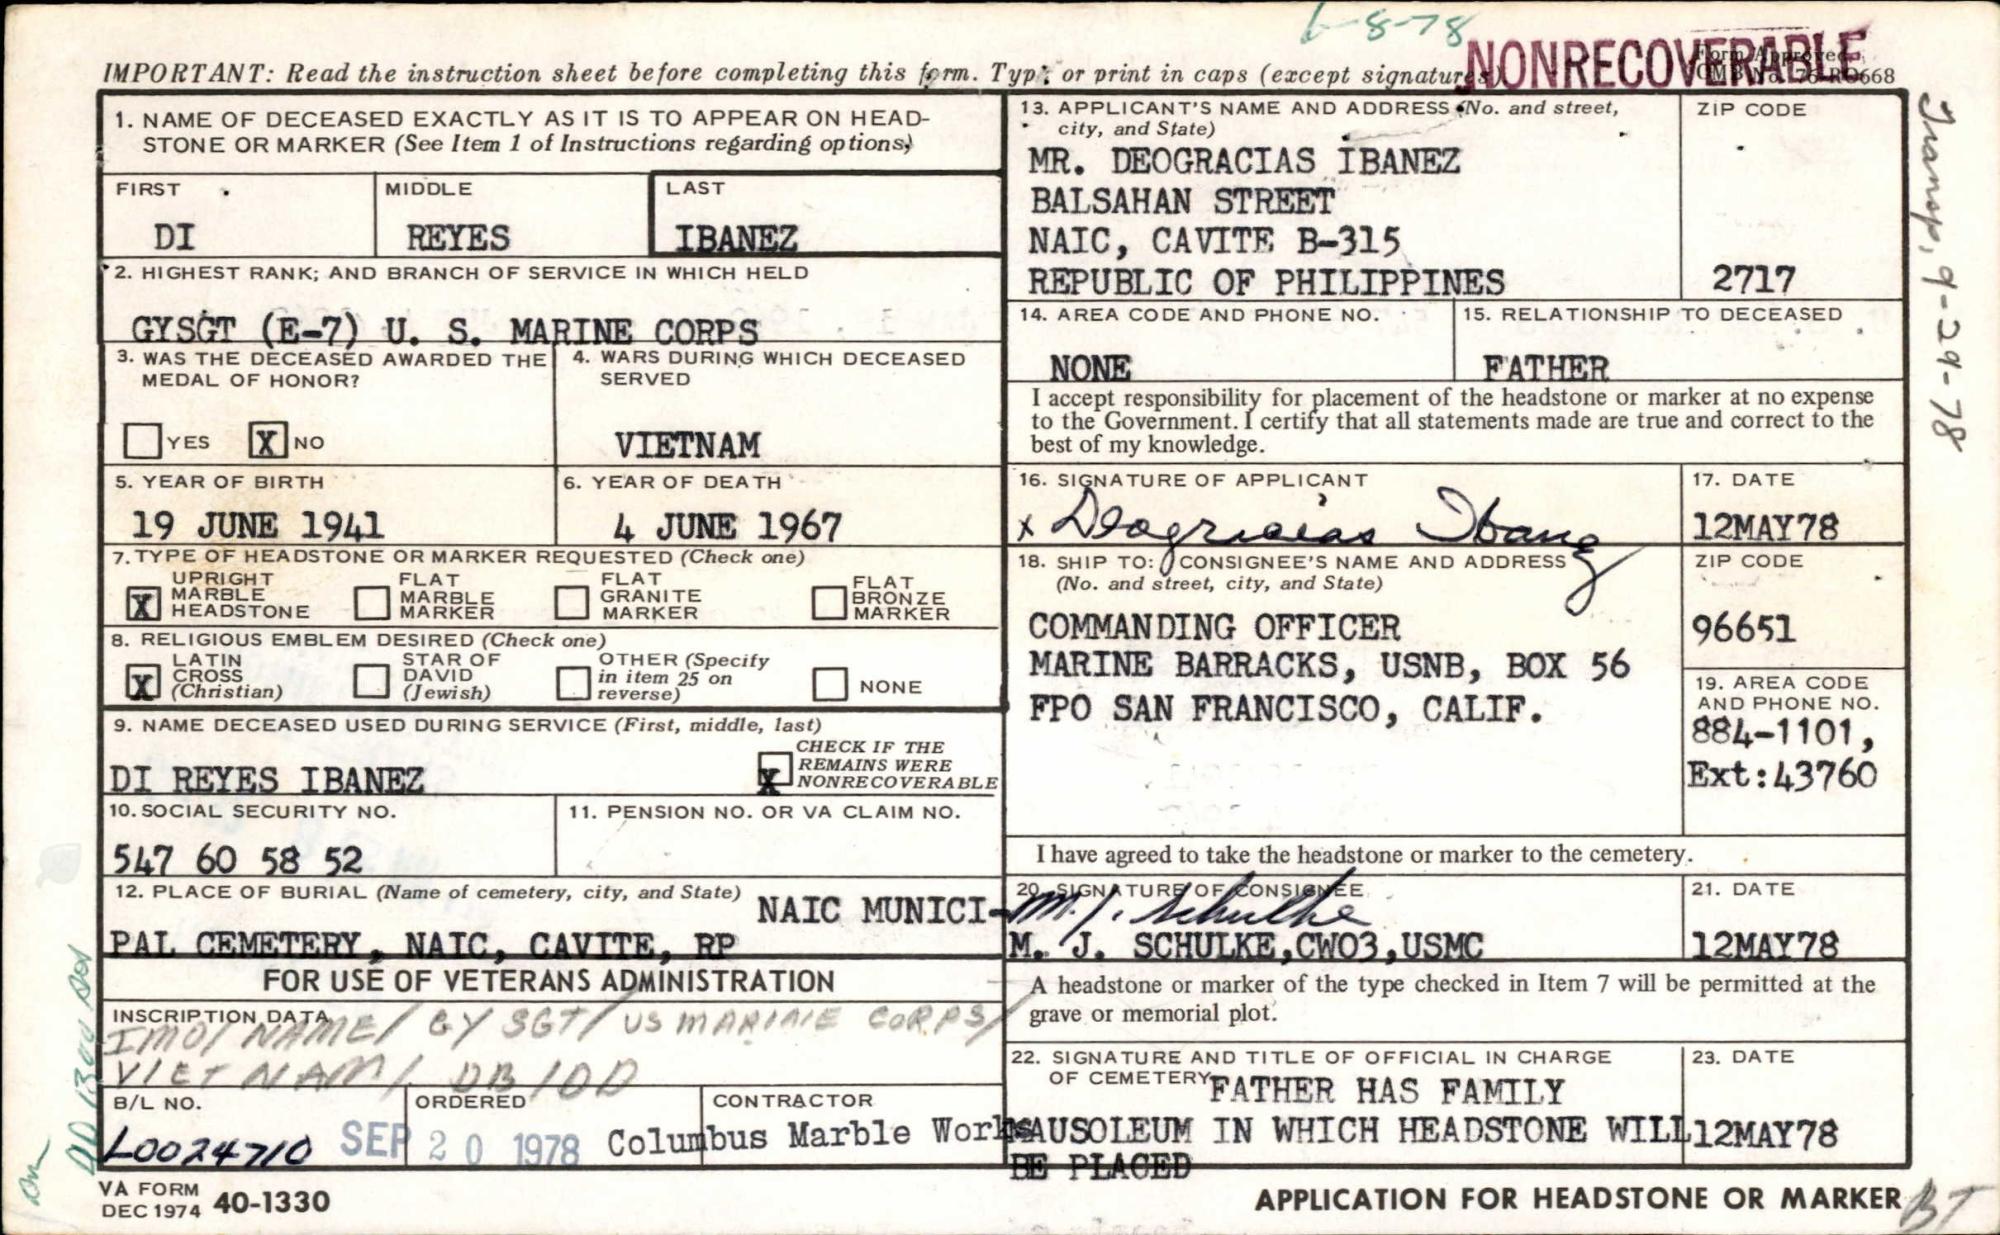 6-8-78
NONRECOVERABLE
IMPORTANT: Read the instruction sheet before completing this form. Type or print in caps (except signatures).
Form Approved
OMB No. 76-R0668
1. NAME OF DECEASED EXACTLY AS IT IS TO APPEAR ON HEAD-
STONE OR MARKER (See Item 1 of Instructions regarding options)
FIRST MIDDLE LAST
DI REYES IBANEZ
2. HIGHEST RANK; AND BRANCH OF SERVICE IN WHICH HELD
GYSGT (E-7) U. S. MARINE CORPS
3. WAS THE DECEASED AWARDED THE
MEDAL OF HONOR?
YES X NO
4. WARS DURING WHICH DECEASED
SERVED
VIETNAM
5. YEAR OF BIRTH
19 JUNE 1941
6. YEAR OF DEATH
4 JUNE 1967
7. TYPE OF HEADSTONE OR MARKER REQUESTED (Check one)
X UPRIGHT
MARBLE
HEADSTONE
FLAT
MARBLE
MARKER
FLAT
GRANITE
MARKER
FLAT
BRONZE
MARKER
8. RELIGIOUS EMBLEM DESIRED (Check one)
X LATIN
CROSS
(Christian)
STAR OF
DAVID
(Jewish)
OTHER (Specify
in item 25 on
reverse)
NONE
9. NAME DECEASED USED DURING SERVICE (First, middle, last)
DI REYES IBANEZ
X CHECK IF THE
REMAINS WERE
NONRECOVERABLE
10. SOCIAL SECURITY NO.
547 60 58 52
11. PENSION NO. OR VA CLAIM NO.
12. PLACE OF BURIAL (Name of cemetery, city, and State) NAIC MUNICI-
PAL CEMETERY, NAIC, CAVITE, RP
FOR USE OF VETERANS ADMINISTRATION
INSCRIPTION DATA
IMO/ NAME/ GY SGT/ US MARINE CORPS/
VIETNAM/ DB/DD
B/L NO.
L0024710
ORDERED
SEP 20 1978
CONTRACTOR
Columbus Marble Works
VA FORM
DEC 1974 40-1330
13. APPLICANT'S NAME AND ADDRESS (No. and street,
city, and State)
MR. DEOGRACIAS IBANEZ
BALSAHAN STREET
NAIC, CAVITE B-315
REPUBLIC OF PHILIPPINES
ZIP CODE
2717
14. AREA CODE AND PHONE NO.
NONE
15. RELATIONSHIP TO DECEASED
FATHER
I accept responsibility for placement of the headstone or marker at no expense
to the Government. I certify that all statements made are true and correct to the
best of my knowledge.
16. SIGNATURE OF APPLICANT
x Deogracias Ibanez
17. DATE
12MAY78
18. SHIP TO: CONSIGNEE'S NAME AND ADDRESS
(No. and street, city, and State)
COMMANDING OFFICER
MARINE BARRACKS, USNB, BOX 56
FPO SAN FRANCISCO, CALIF.
ZIP CODE
96651
19. AREA CODE
AND PHONE NO.
884-1101,
Ext:43760
I have agreed to take the headstone or marker to the cemetery.
20. SIGNATURE OF CONSIGNEE
M. J. Schulke
M. J. SCHULKE,CWO3,USMC
21. DATE
12MAY78
A headstone or marker of the type checked in Item 7 will be permitted at the
grave or memorial plot.
22. SIGNATURE AND TITLE OF OFFICIAL IN CHARGE
OF CEMETERY FATHER HAS FAMILY
MAUSOLEUM IN WHICH HEADSTONE WILL
BE PLACED
23. DATE
12MAY78
APPLICATION FOR HEADSTONE OR MARKER
BT
Transp, 9-29-78